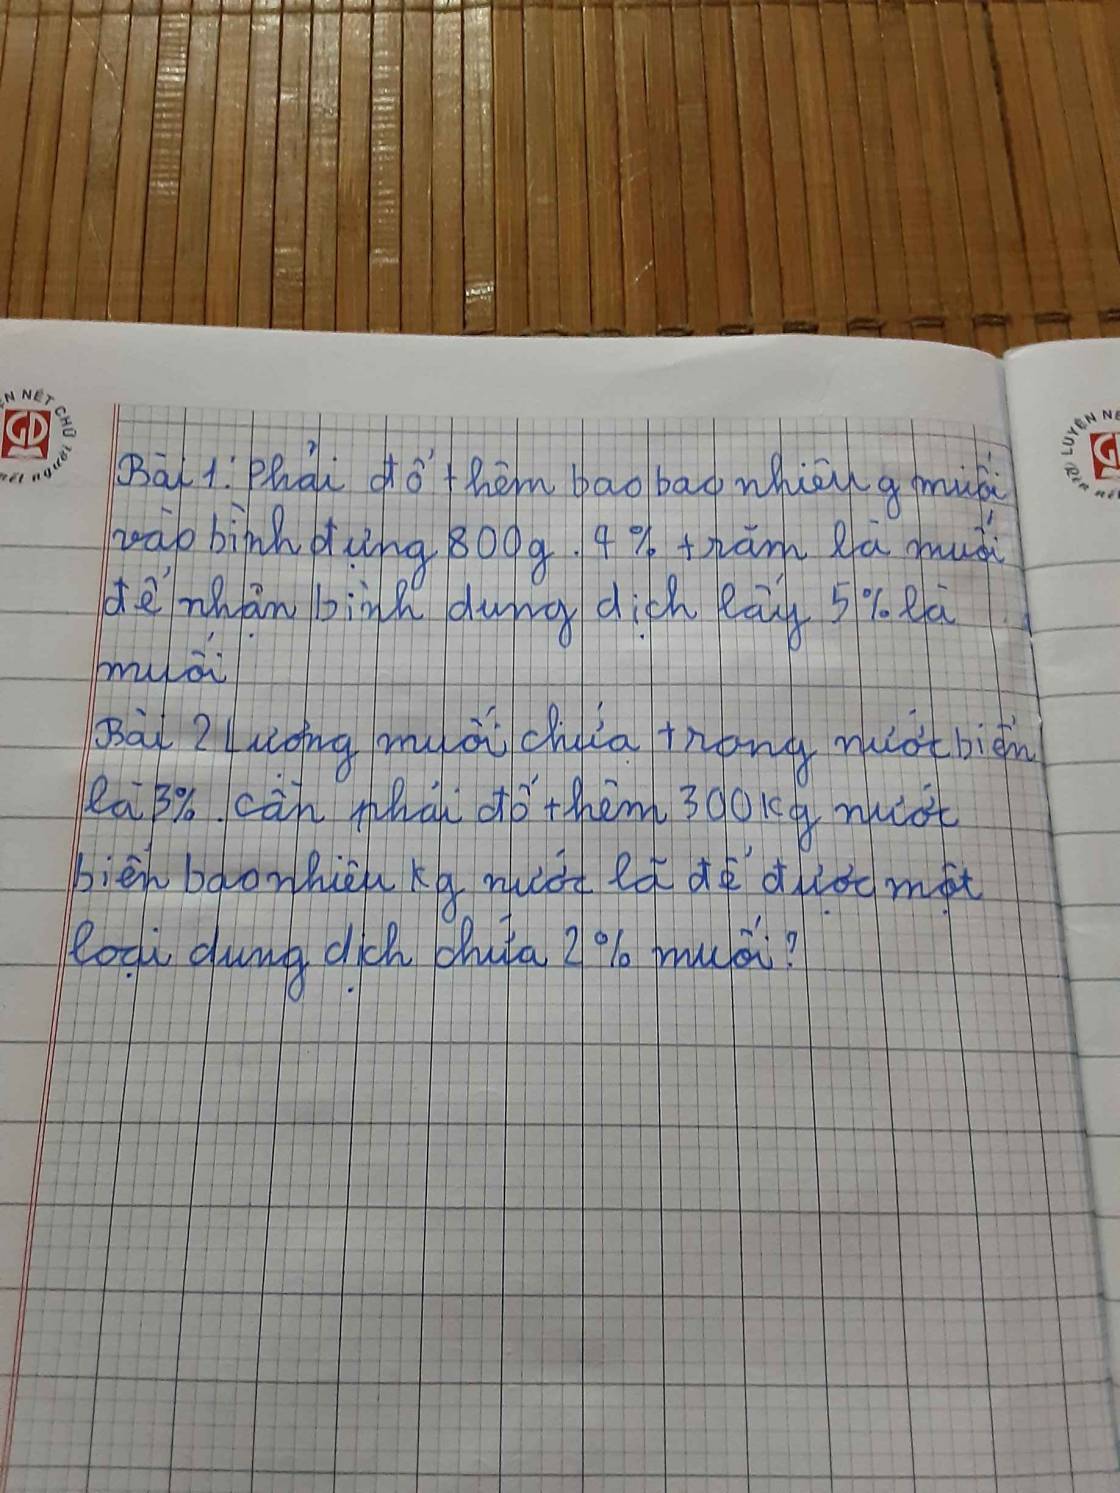 ÈN NÉT CHỮ
GD
nết người
LUYỆN NÉ
G
Bài 1: Phải đổ thêm bao bao nhiêu g muối
vào bình đựng 800g. 4% trăm là muối
để nhận bình dung dịch lấy 5% là
muối
Bài 2 Lượng muối chứa trong nước biển
là 3%. cần phải đổ thêm 300kg nước
biển bao nhiêu kg nước lã để được một
loại dung dịch chứa 2% muối?